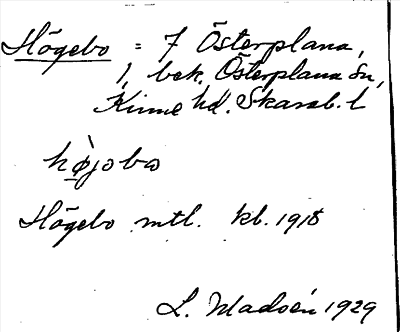 Högebo = 7 Österplana,
1, bek. Österplana sn,
Kinne hd. Skarab. l
hø̀jobo
Högebo mtl. kb. 1918
L. Madsén 1929